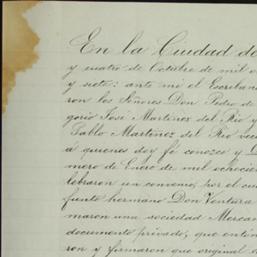 En la Ciudad de
y cuatro de Octubre de mil o
y siete: ante mi el Escriban
ron los Señores Don Pedro de
gorio José Martinez del Rio y
Pablo Martinez del Rio veci
á quienes doy fé conozco y D
mero de Enero de mil ochocien
lebraron un convenio, por el cua
funto hermano Don Ventura
maron una sociedad Mercan
documento privado, que entr
ron y firmaron que original e